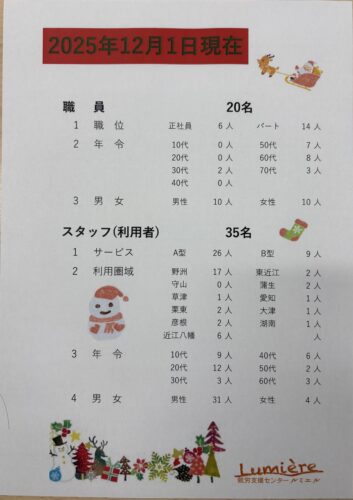 2025年12月1日現在
職 員 20名
1 職 位 正社員 6 人 パート 14 人
2 年 令 10代 0 人 50代 7 人
20代 0 人 60代 8 人
30代 2 人 70代 3 人
40代 0 人
3 男 女 男性 10 人 女性 10 人
スタッフ(利用者) 35名
1 サービス A型 26 人 B型 9 人
2 利用圏域 野洲 17 人 東近江 2 人
守山 0 人 蒲生 2 人
草津 1 人 愛知 1 人
栗東 2 人 大津 1 人
彦根 2 人 湖南 1 人
近江八幡 6 人 人
3 年 令 10代 9 人 40代 6 人
20代 12 人 50代 2 人
30代 3 人 60代 3 人
4 男 女 男性 31 人 女性 4 人
Lumière
就労支援センター ルミエル